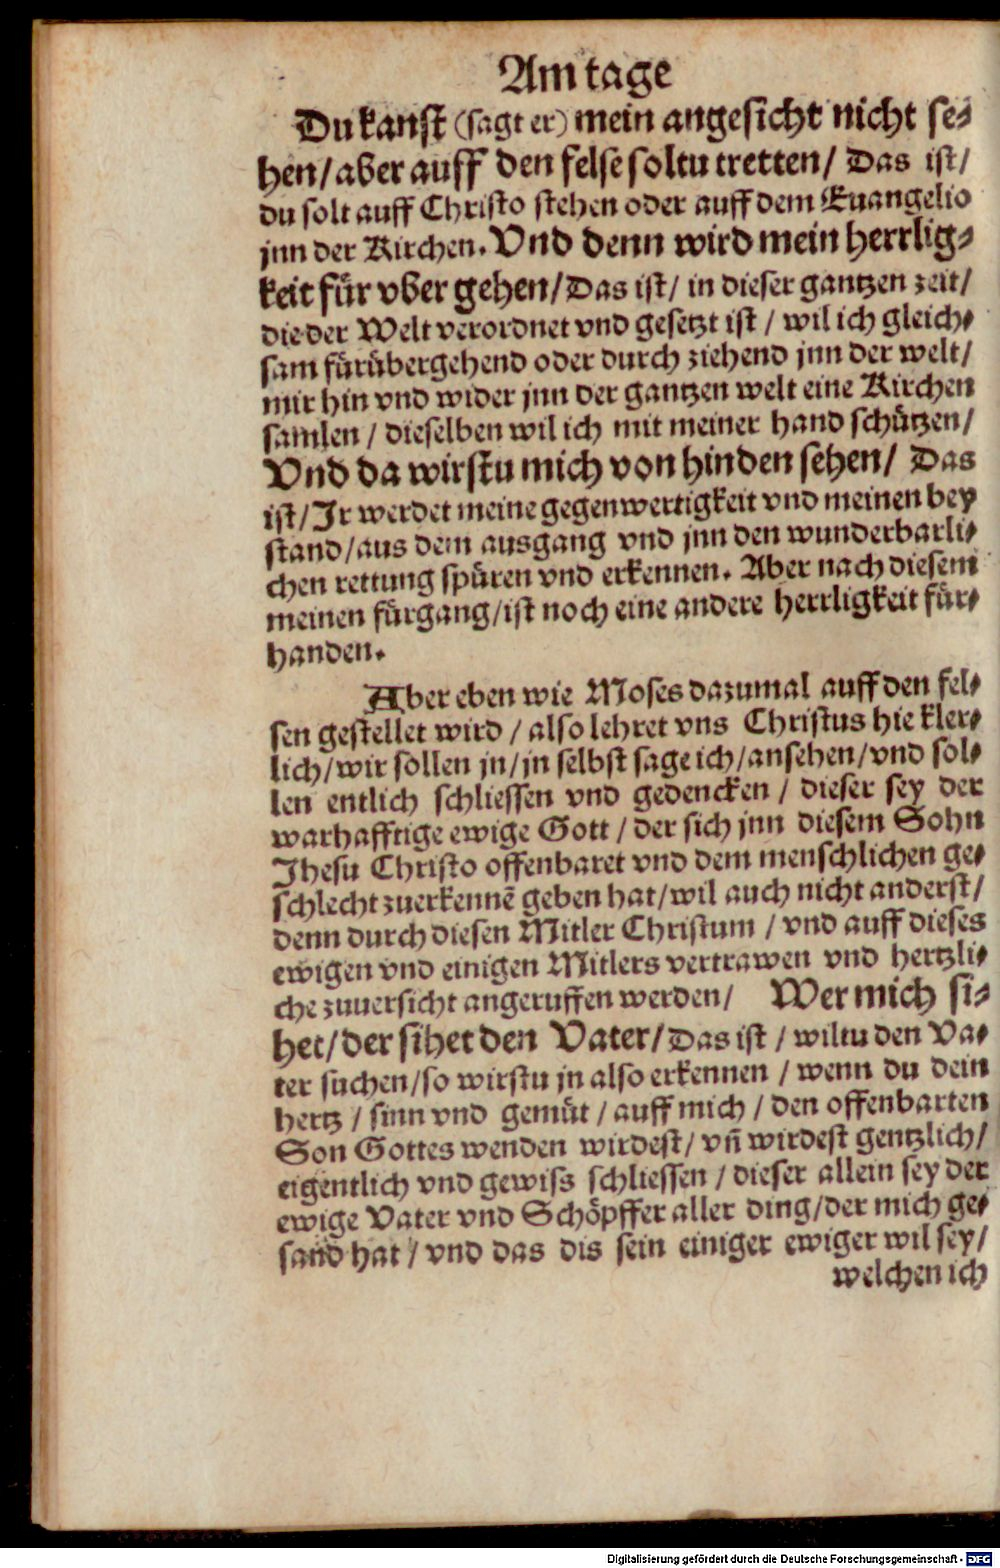 Am tage
Du kanst (sagt er) mein angesicht nicht se-
hen/ aber auff den felse soltu tretten/ Das ist/
du solt auff Christo stehen oder auff dem Euangelio
jnn der Kirchen. Vnd denn wird mein herrlig-
keit für vber gehen/ Das ist/ in dieser gantzen zeit/
die der Welt verordnet vnd gesetzt ist / wil ich gleich-
sam fürübergehend oder durch ziehend jnn der welt/
mir hin vnd wider jnn der gantzen welt eine Kirchen
samlen / dieselben wil ich mit meiner hand schützen/
Vnd da wirstu mich von hinden sehen/ Das
ist/ Jr werdet meine gegenwertigkeit vnd meinen bey
stand/ aus dem ausgang vnd jnn den wunderbarli-
chen rettung spüren vnd erkennen. Aber nach diesem
meinen fürgang/ ist noch eine andere herrligkeit für-
handen.
Aber eben wie Moses dazumal auff den fel-
sen gestellet wird / also lehret vns Christus hie kler-
lich/ wir sollen jn/ jn selbst sage ich/ ansehen/ vnd sol-
len entlich schliessen vnd gedencken / dieser sey der
warhafftige ewige Gott / der sich jnn diesem Sohn
Jhesu Christo offenbaret vnd dem menschlichen ge-
schlecht zuerkennē geben hat/ wil auch nicht anderst/
denn durch diesen Mitler Christum / vnd auff dieses
ewigen vnd einigen Mitlers vertrawen vnd hertzli-
che zuuersicht angeruffen werden/ Wer mich si-
het/ der sihet den Vater/ Das ist / wiltu den Va-
ter suchen/ so wirstu jn also erkennen / wenn du dein
hertz / sinn vnd gemüt / auff mich / den offenbarten
Son Gottes wenden wirdest/ vñ wirdest gentzlich/
eigentlich vnd gewiss schliessen / dieser allein sey der
ewige Vater vnd Schöpffer aller ding/ der mich ge-
sand hat / vnd das dis sein einiger ewiger wil sey/
welchen ich
Digitalisierung gefördert durch die Deutsche Forschungsgemeinschaft - DFG